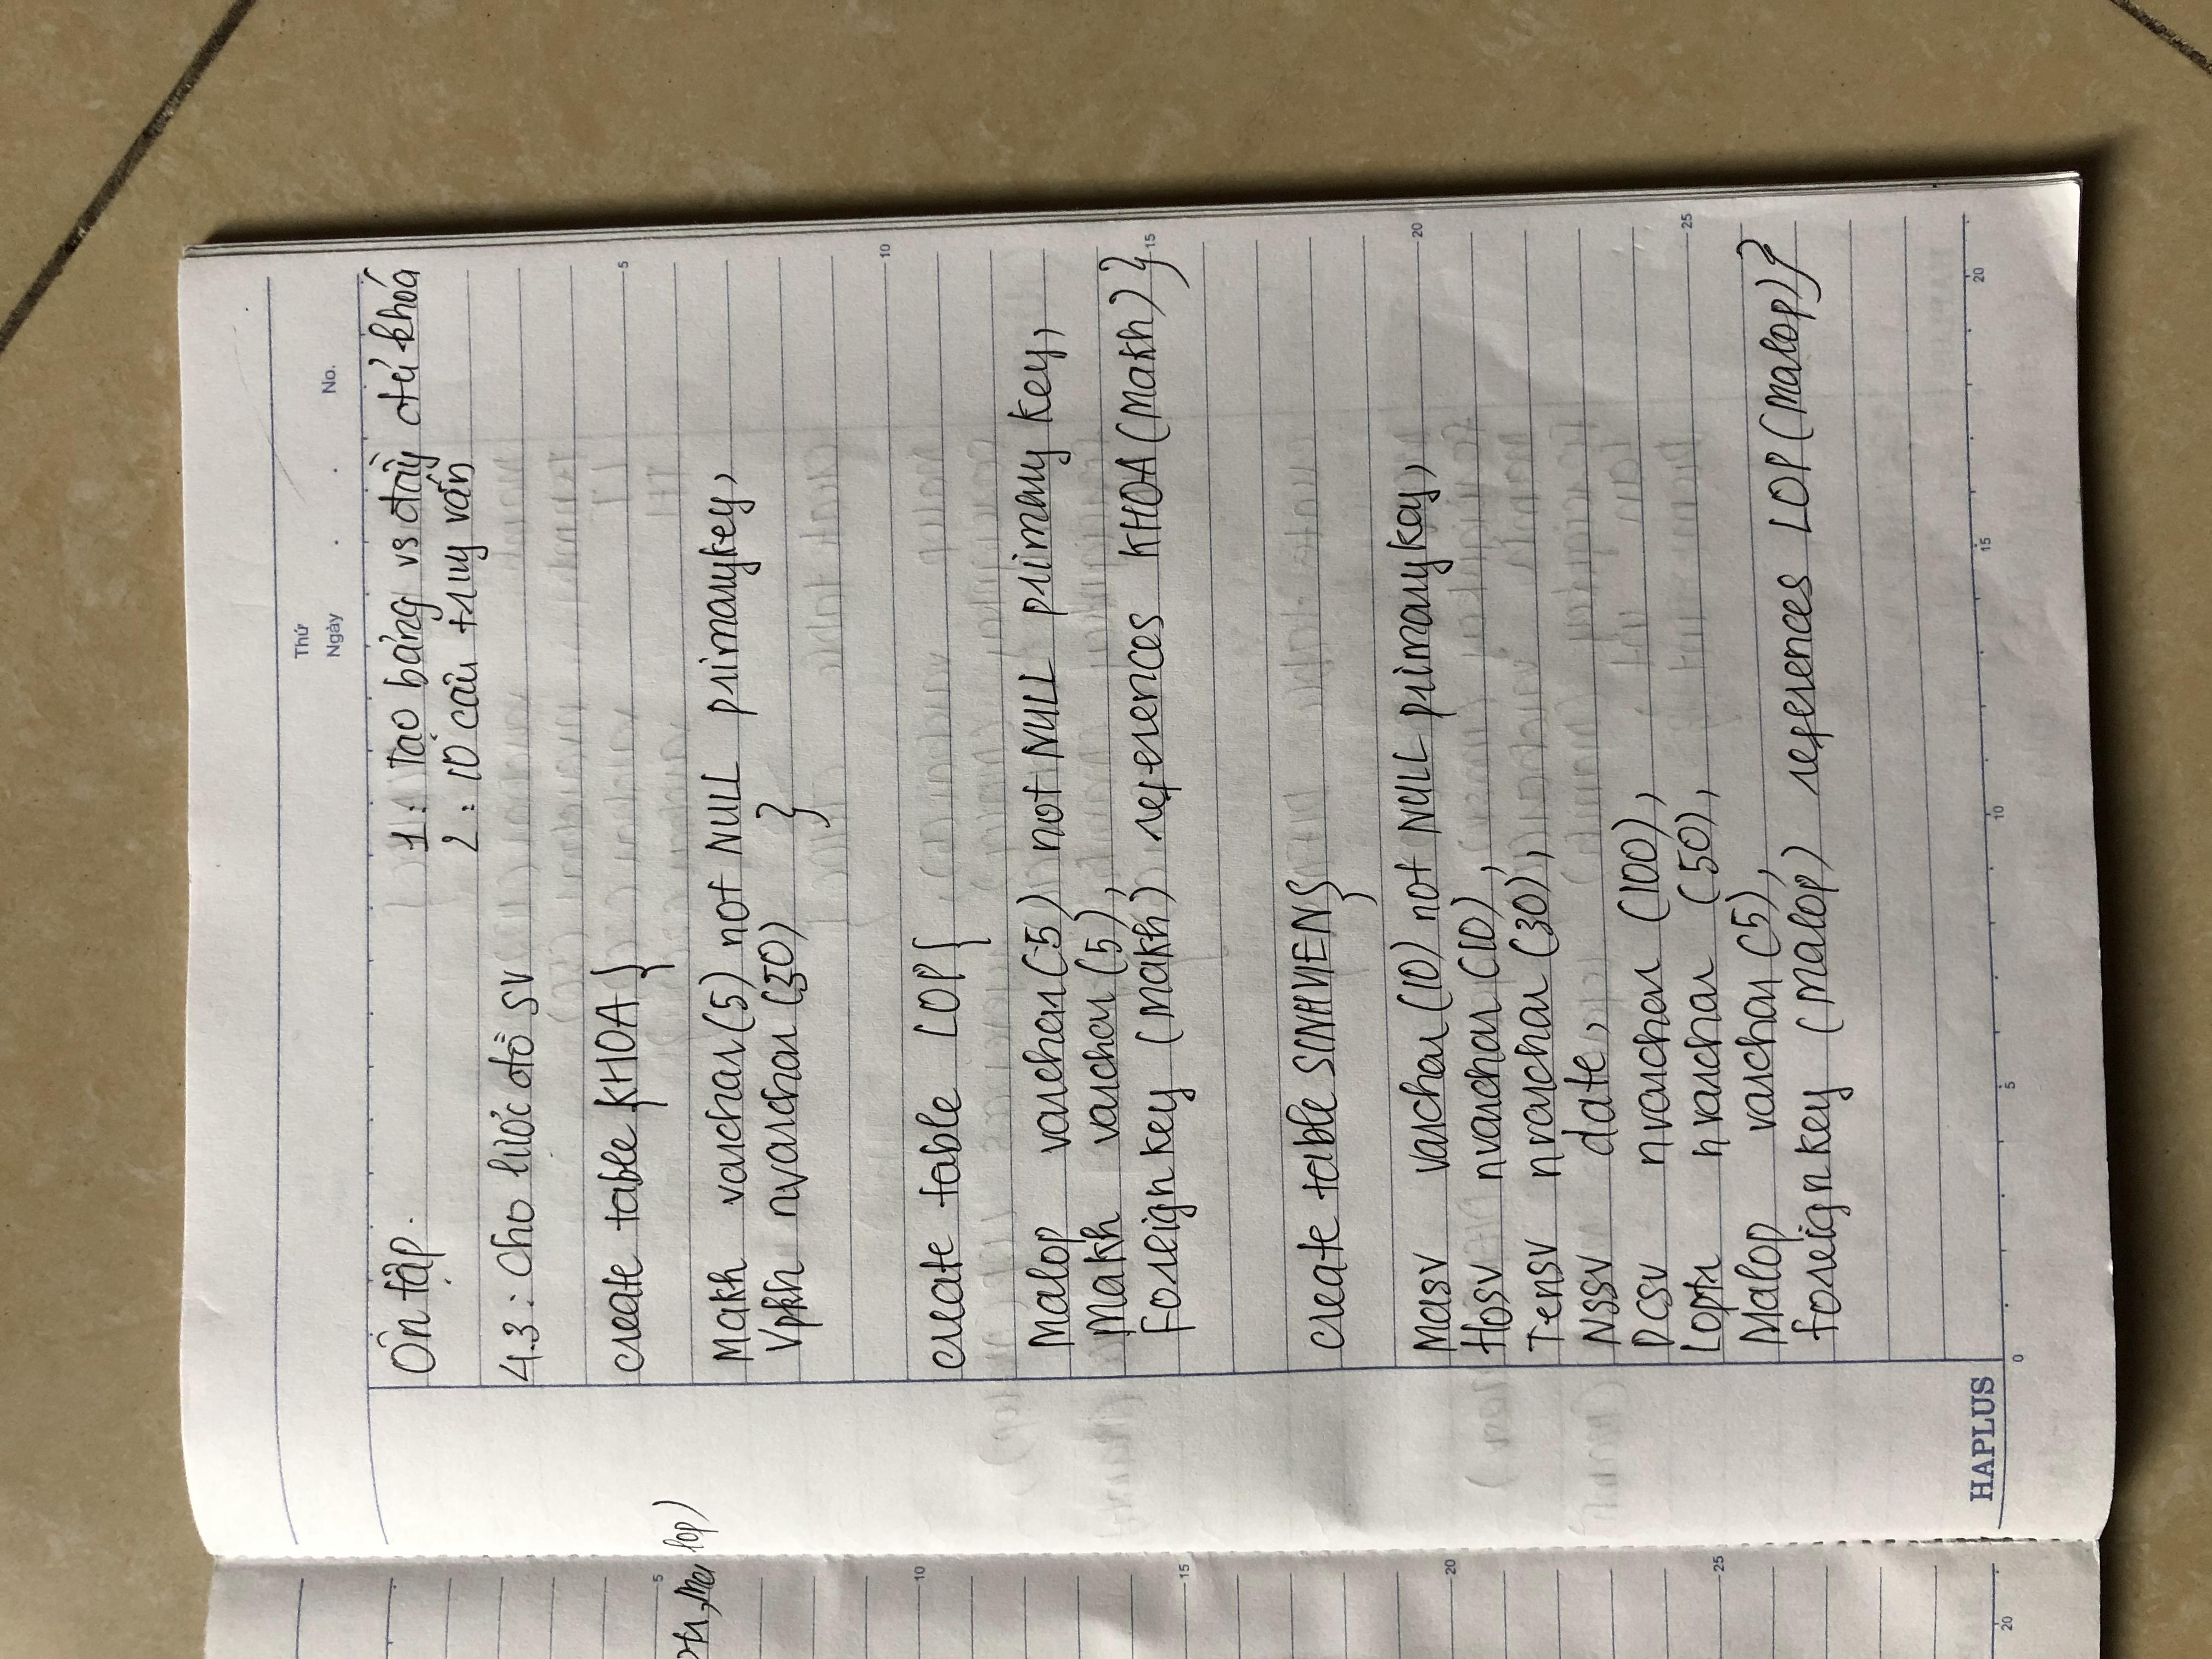 Thứ
Ngày . . No.
Ôn tập. 1: Tạo bảng vs đầy đủ khóa
2: 10 câu truy vấn
4.3: Cho lược đồ SV
create table {KHOA}
5
lop)
Makh varchar(5) not NULL primarykey,
Vpkh nvarchar (50) }
10
create table LOP{
Malop varchar(5) not NULL primary key,
Makh varchar (5),
foreign key (Makh) references KHOA (Makh) }
15
create table SINHVIEN{
Masv varchar (10) not NULL primary key,
20
Hosv nvarchar (10),
Tensv nvarchar (30),
NSSV date,
DCSV nvarchar (100),
Loptr nvarchar (50),
25
Malop varchar (5),
foreign key (Malop) references LOP (Malop)}
HAPLUS
0 5 10 15 20
5
10
15
20
25
20